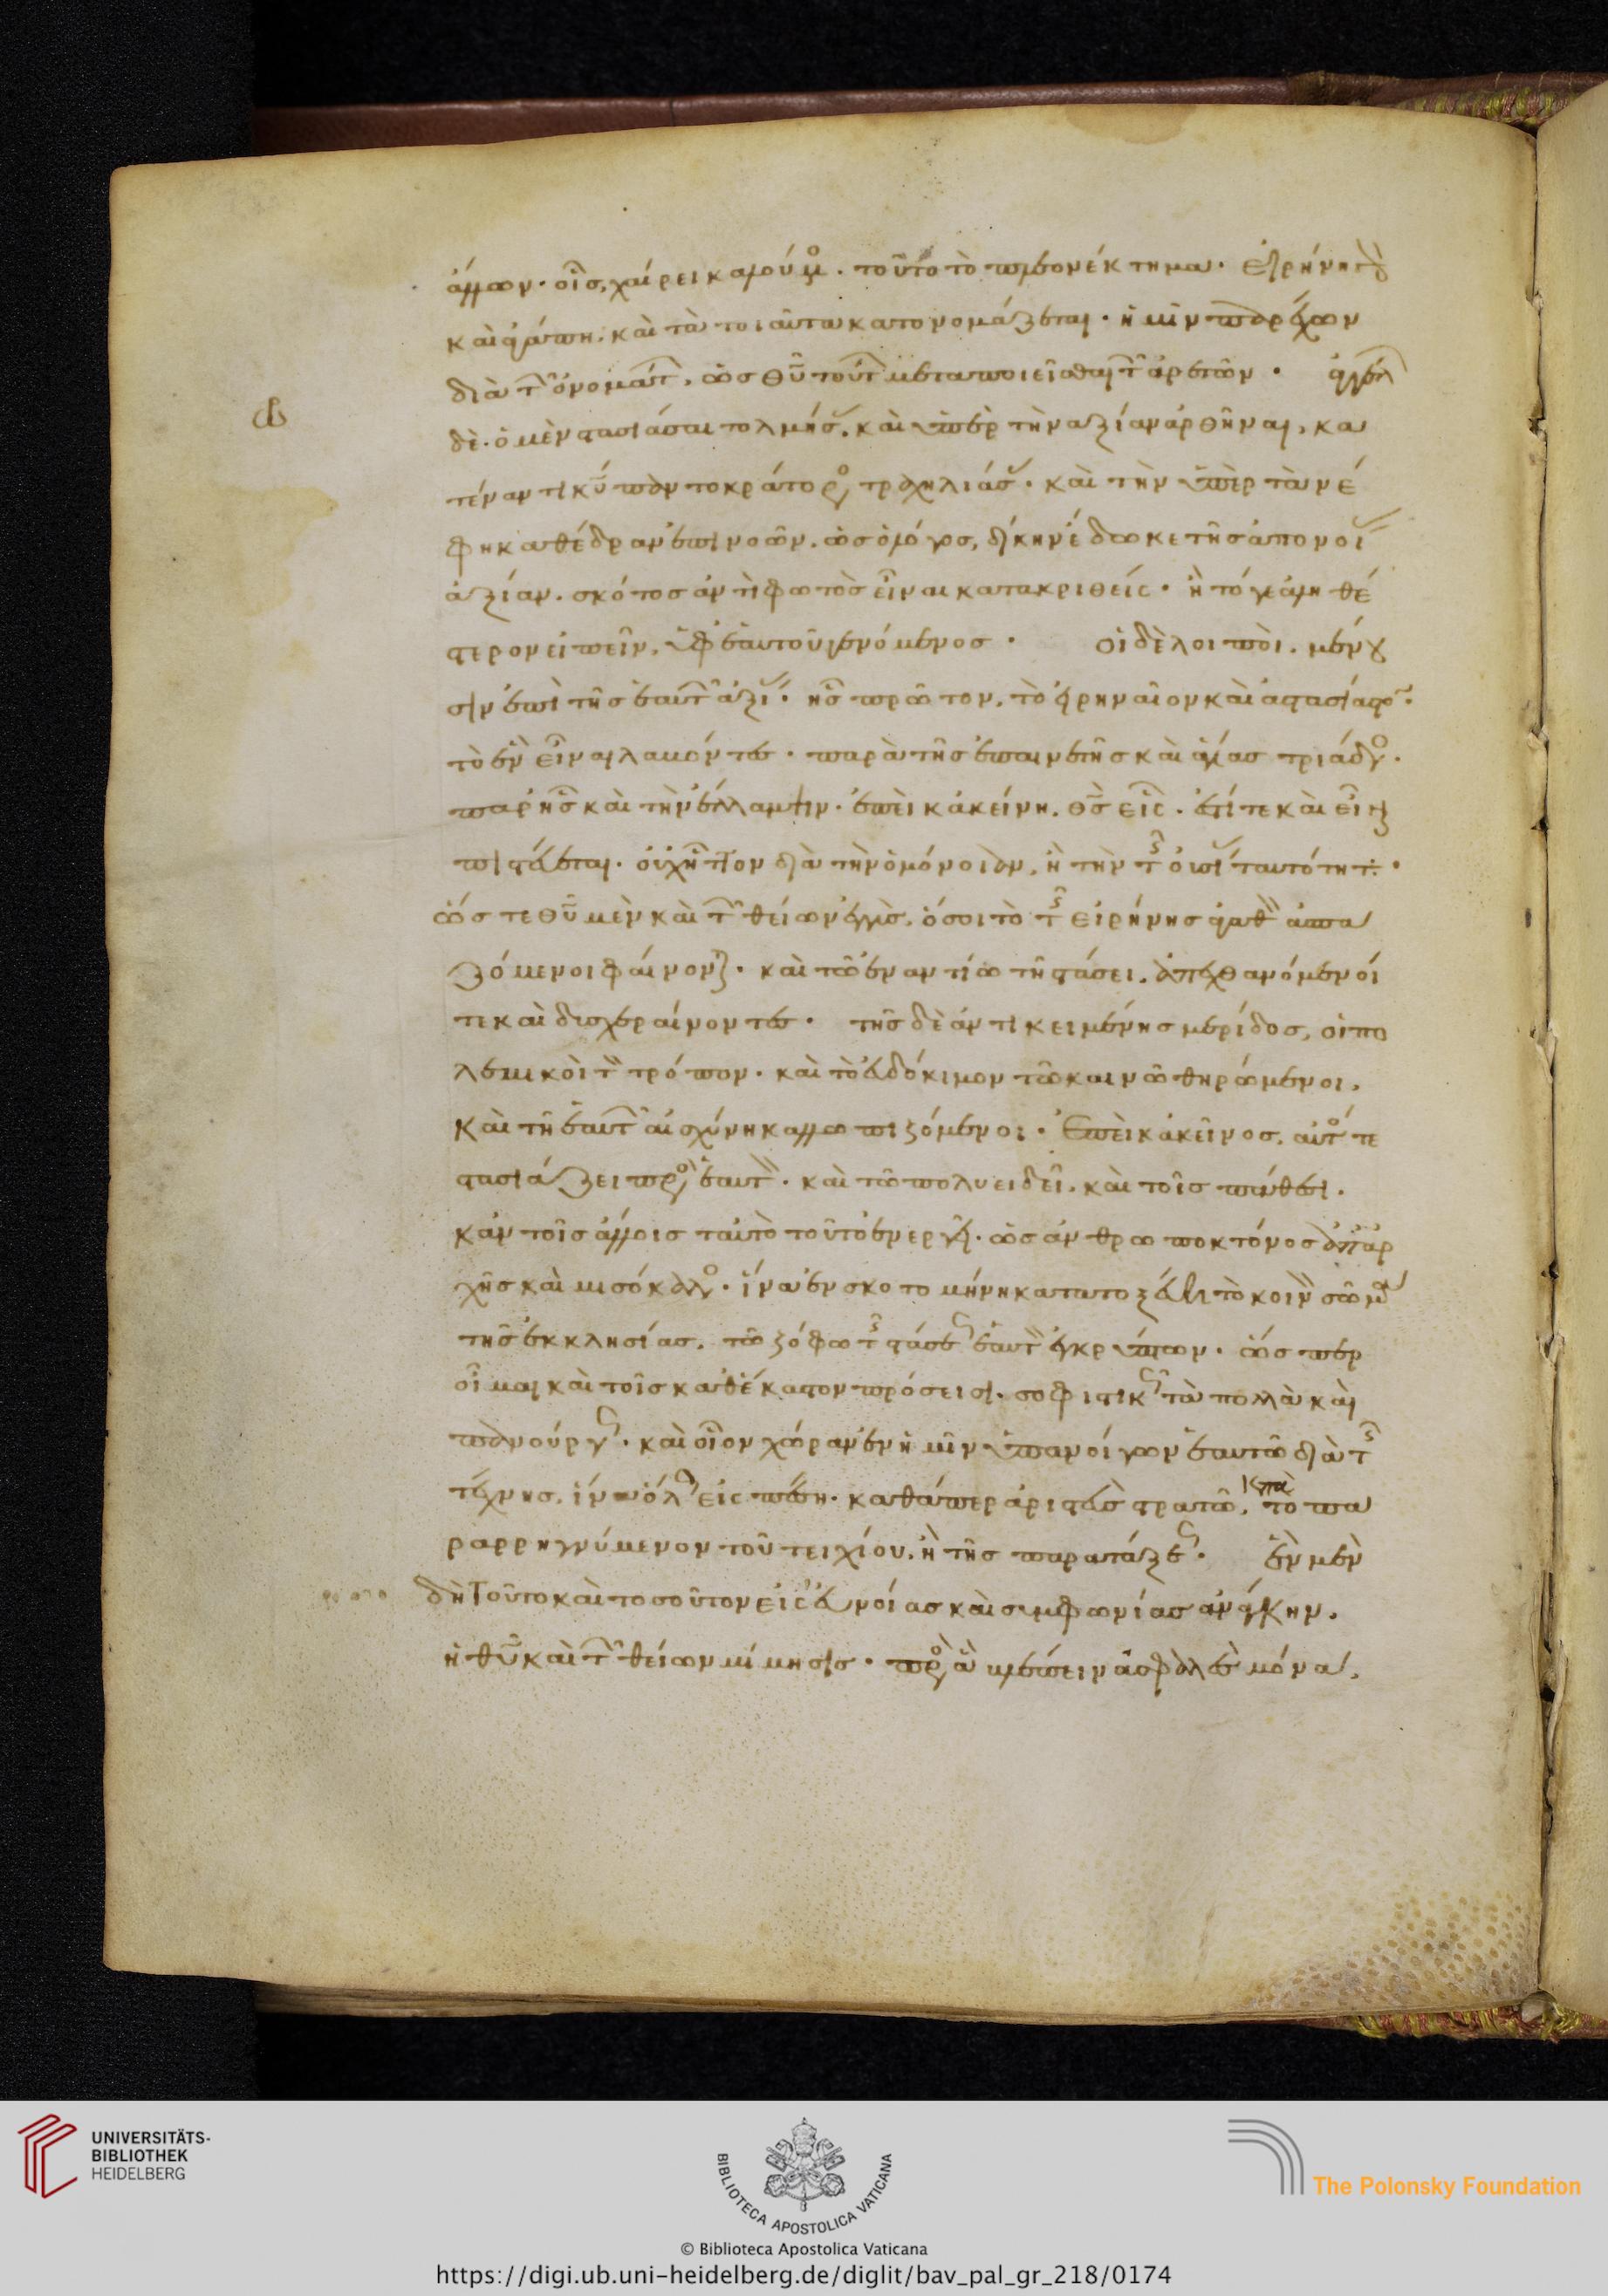 ἄλλων· οἷς χαίρει καλούμ(εν)ο(ς)· τοῦτο τὸ πλεονέκτημα· εἰρήνη γ(ὰρ)
καὶ ἀγάπη· καὶ τὰ τοιαῦτα κατονομάζεται· ἡμῖν παρέχων
διὰ τ(ῶν) ὀνομάτ(ων), ὡς θῦ τούτ(ων) μεταποιεῖσθαι τ(ῶν) ἀρετῶν· ἀγγέλ(ων)
δὲ· ὁ μὲν στασιάσαι τολμήσ(ας), καὶ ὑπὲρ τὴν ἀξίαν ἀρθῆναι, κα
τέναντι κῦ παντοκράτορο(ς) τραχηλιάσ(ας)· καὶ τὴν ὑπὲρ τὰ νέ
φη καθέδραν ἐπινοῶν· ὡς ὁ λόγος, δίκην ἔδωκε τῆς ἀπονοί(ας)
ἀξίαν· σκότος ἀντὶ φωτὸς εἶναι κατακριθείς· ἢ τό γε ἀληθέ
στερον εἰπεῖν, ὑφ' ἑαυτοῦ γενόμενος· οἱ δὲ λοιποὶ· μένου
σιν ἐπὶ τῆς ἑαυτ(ῶν) ἀξί(ας)· ἧς πρῶτον, τὸ εἰρηναῖον καὶ ἀστασίαστο(ν)·
τὸ ἓν εἶναι λαβόντες· παρὰ τῆς ἐπαινετῆς καὶ ἁγίας τριάδο(ς)·
παρ' ἧς καὶ τὴν ἔλλαμψιν· ἐπεὶ κἀκείνη, θς εἷς· ἔστί τε καὶ εἶν(αι)
πιστεύεται· οὐχ ἧττον διὰ τὴν ὁμόνοιαν, ἢ τὴν τ(ῆς) οὐσί(ας) ταυτότητ(α)·
ὥστε θῦ μὲν καὶ τ(ῶν) θείων ἐγγὺς, ὅσοι τὸ τ(ῆς) εἰρήνης ἀγαθ(ὸν) ἀσπα
ζόμενοι φαίνοντ(αι)· καὶ τῶ ἐναντίω τῆ στάσει, ἀπεχθανόμενοί
τε καὶ δυσχεραίνοντες· τῆς δὲ ἀντικειμένης μερίδος, οἱ πο
λεμικοὶ τ(ὸν) τρόπον· καὶ τὸ εὐδόκιμον τῶ καινῶ θηρώμενοι,
καὶ τῆ ἑαυτ(ῶν) αἰσχύνη καλλωπιζόμενοι· ἐπεὶ κἀκεῖνος, αὐτό(ς) τε
στασιάζει πρὸ(ς) ἑαυτ(ὸν)· καὶ τῶ πολυειδεῖ, καὶ τοῖς πάθεσι·
κἀν τοῖς ἄλλοις ταὐτὸ τοῦτο ἐνεργεῖ· ὡς ἀνθρωποκτόνος ἀπ' ἀρ
χῆς καὶ μισόκαλο(ς)· ἵνα ἐν σκοτομήνη κατατοξεύη τὸ κοιν(ὸν) σῶμα
τῆς ἐκκλησίας, τῶ ζόφω τ(ῆς) στάσε(ως) ἑαυτ(ὸν) ἐγκρύπτων· ὥσπερ
οἶμαι καὶ τοῖς καθέκαστον πρόσεισι· σοφιστικ(ῶς) τὰ πολλὰ καὶ
πανούργ(ως)· καὶ οἷον χώραν ἐν ἡμῖν ὑπανοίγων ἑαυτῶ διὰ τ(ῆς)
τέχνης, ἵν' ὅλ(ως) εἰσπέση· καθάπερ ἀριστεὺς στρατῶ, κατὰ τὸ πα
ραρρηγνύμενον τοῦ τειχίου, ἢ τῆς παρατάξε(ως)· ἓν μὲν
δὴ τοῦτο καὶ τοσοῦτον εἰς εὐνοίας καὶ συμφωνίας ἀνάγκην,
ἡ θῦ καὶ τ(ῶν) θείων μίμησις· πρὸ(ς) ἃ βλέπειν ἀσφαλὲς μόνα,
UNIVERSITÄTS-
BIBLIOTHEK
HEIDELBERG
BIBLIOTECA APOSTOLICA VATICANA
The Polonsky Foundation
© Biblioteca Apostolica Vaticana
https://digi.ub.uni-heidelberg.de/diglit/bav_pal_gr_218/0174